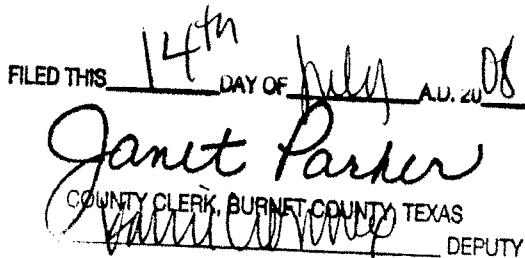 FILED THIS 14th DAY OF July A.D. 20 08
Janet Parker
COUNTY CLERK, BURNET COUNTY, TEXAS
DEPUTY